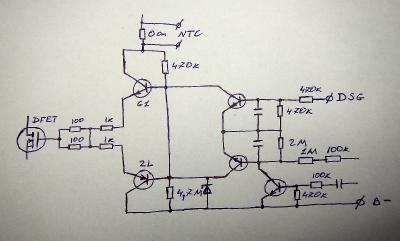 0 Om NTC
470K
DFET
100
1K
G1
470K
DSG
470K
100
1K
2L
4,7M
2M
2M
100K
100K
470K
B-